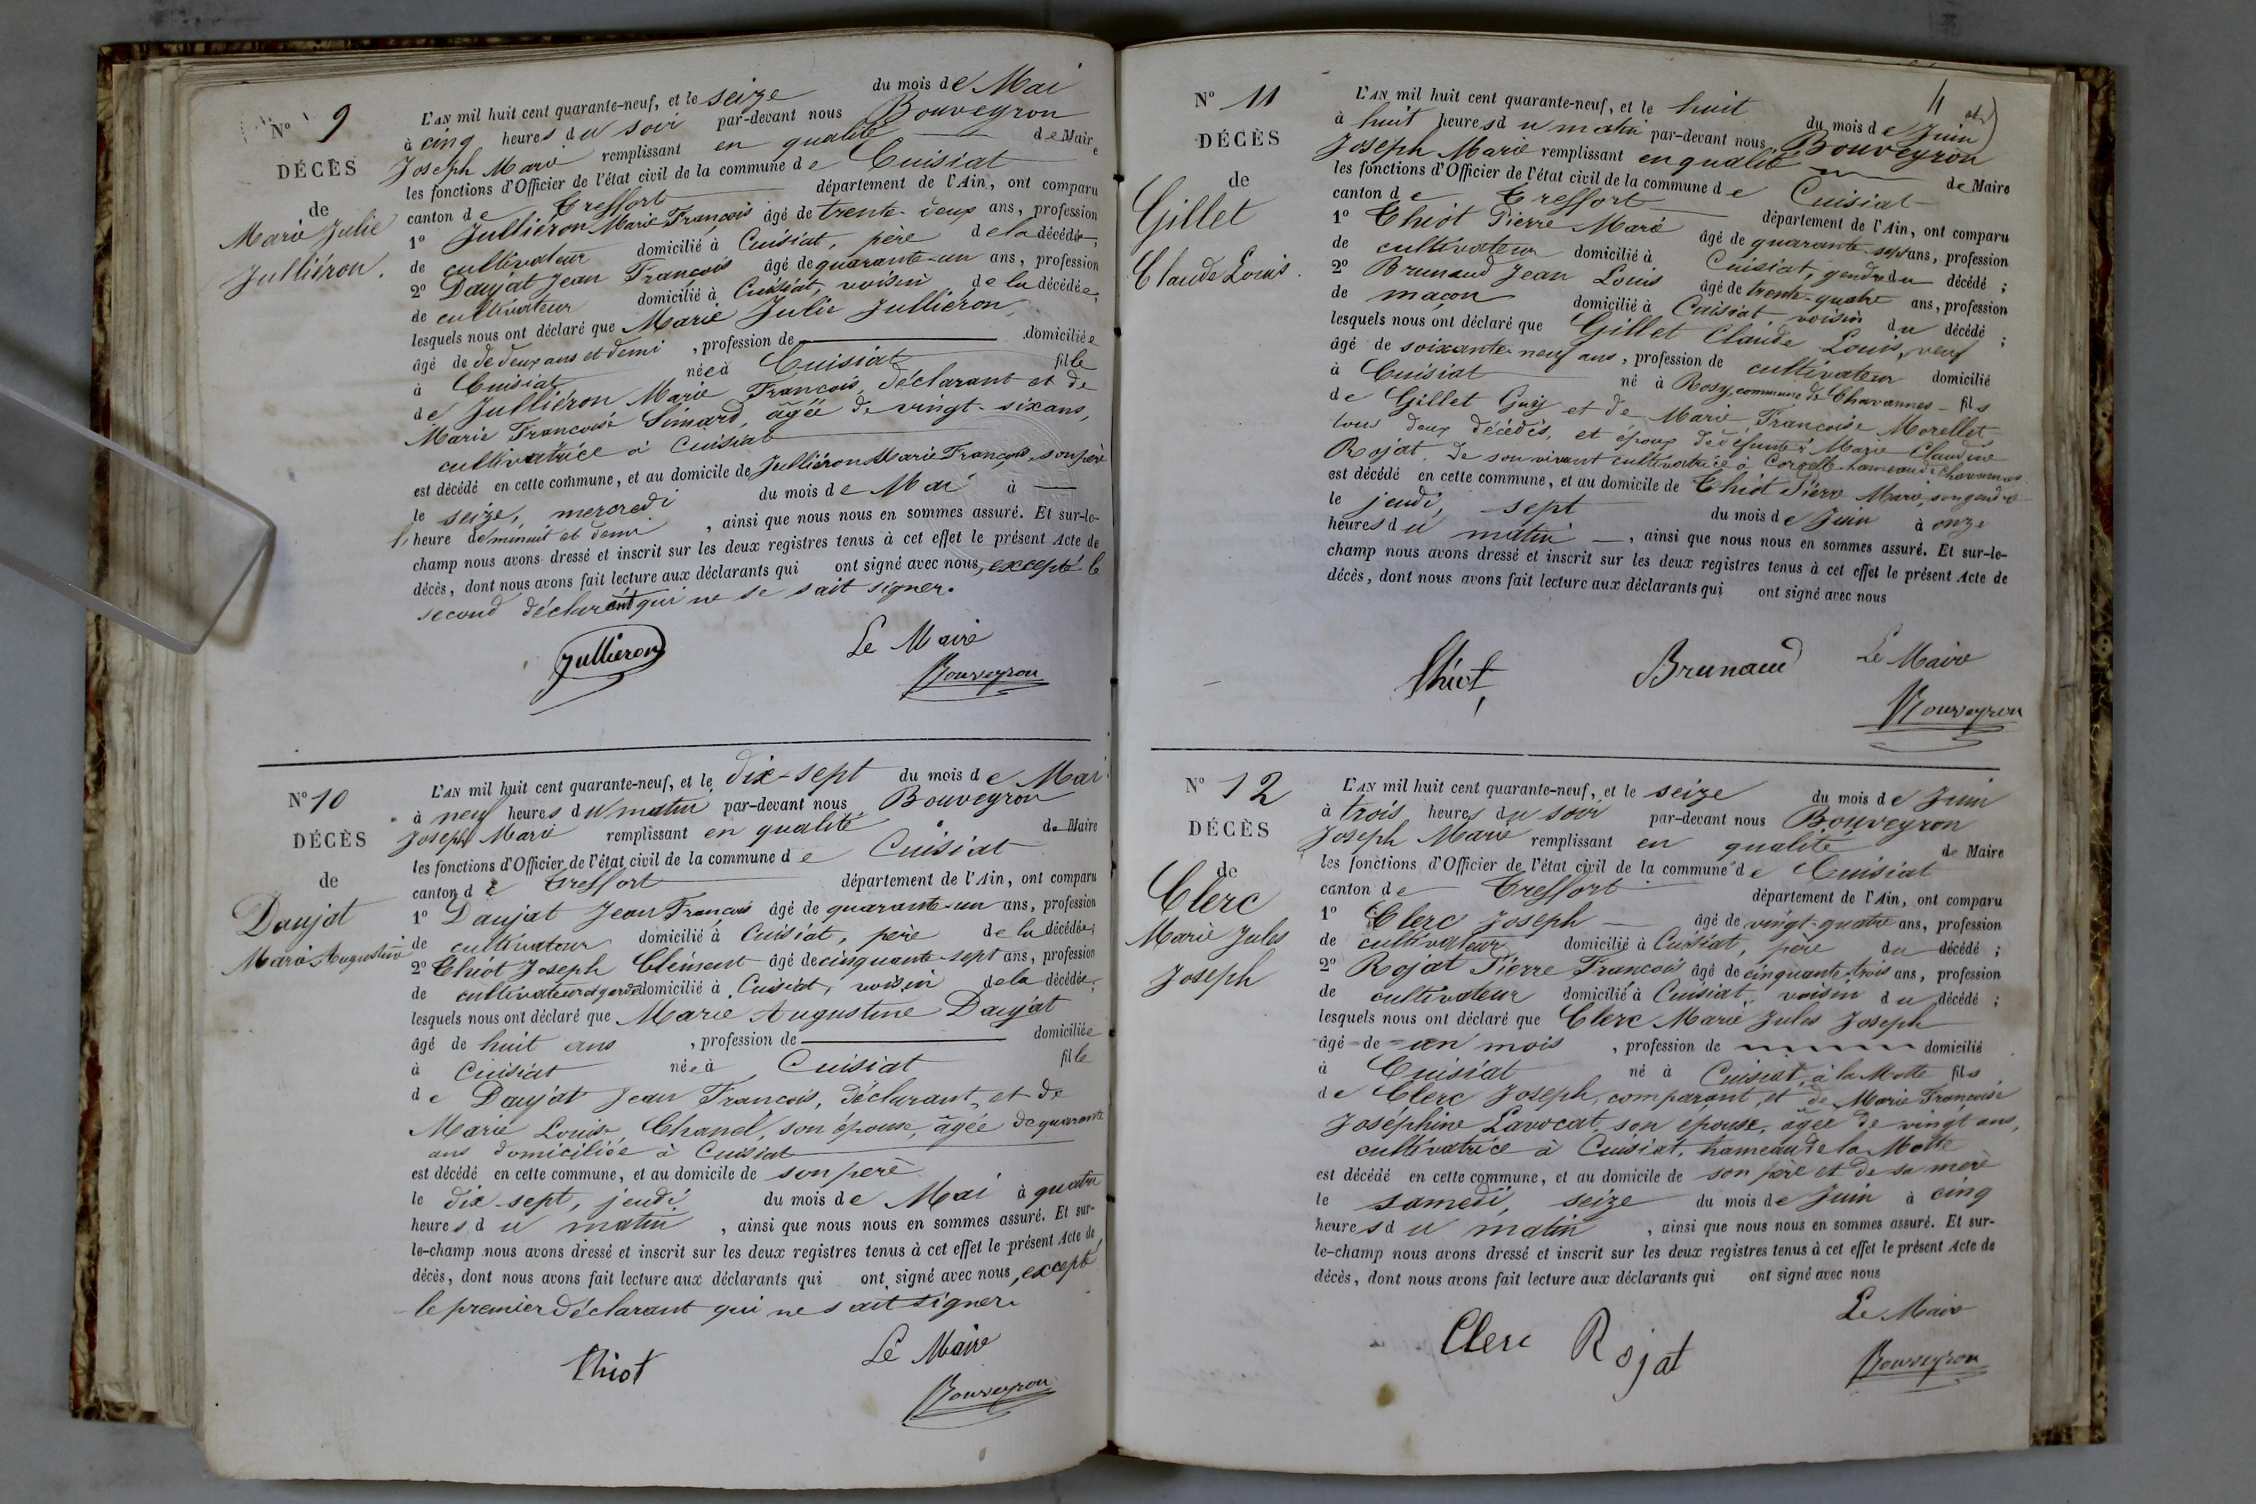 N° 9
DÉCÈS
de
Marie Julie
Julliéron.
L'AN mil huit cent quarante-neuf, et le seize du mois de Mai
à cinq heures du soir par-devant nous Bouveyron
Joseph Marie remplissant en qualité de Maire
les fonctions d'Officier de l'état civil de la commune de Cuisiat
canton de Treffort département de l'Ain, ont comparu
1° Julliéron Marie François âgé de trente-deux ans, profession
de cultivateur domicilié à Cuisiat, père de la décédée;
2° Daujat Jean François âgé de quarante-un ans, profession
de cultivateur domicilié à Cuisiat, voisin de la décédée;
lesquels nous ont déclaré que Marie Julie Julliéron,
âgé de de deux ans et demi, profession de domiciliée
à Cuisiat née à Cuisiat fille
de Julliéron Marie François, déclarant et de
Marie Françoise Simard, âgée de vingt-six ans,
cultivatrice à Cuisiat
est décédé en cette commune, et au domicile de Julliéron Marie François, son père
le seize, mercredi du mois de Mai à
l'heure de minuit et demi, ainsi que nous nous en sommes assuré. Et sur-le-
champ nous avons dressé et inscrit sur les deux registres tenus à cet effet le présent Acte de
décès, dont nous avons fait lecture aux déclarants qui ont signé avec nous, excepté le
second déclarant qui ne se sait signer.
Julliéron
Le Maire
Bouveyron
N° 10
DÉCÈS
de
Daujat
Marie Augustine
L'AN mil huit cent quarante-neuf, et le dix-sept du mois de Mai
à neuf heures du matin par-devant nous Bouveyron
Joseph Marie remplissant en qualité de Maire
les fonctions d'Officier de l'état civil de la commune de Cuisiat
canton de Treffort département de l'Ain, ont comparu
1° Daujat Jean François âgé de quarante-un ans, profession
de cultivateur domicilié à Cuisiat, père de la décédée;
2° Chiot Joseph Clément âgé de cinquante-sept ans, profession
de cultivateur et garde domicilié à Cuisiat, voisin de la décédée;
lesquels nous ont déclaré que Marie Augustine Daujat
âgé de huit ans, profession de domiciliée
à Cuisiat née à Cuisiat fille
de Daujat Jean François, déclarant, et de
Marie Louise Chanel, son épouse, âgée de quarante
ans domiciliée à Cuisiat
est décédé en cette commune, et au domicile de son père
le dix-sept, jeudi du mois de Mai à quatre
heures du matin, ainsi que nous nous en sommes assuré. Et sur-
le-champ nous avons dressé et inscrit sur les deux registres tenus à cet effet le présent Acte de
décès, dont nous avons fait lecture aux déclarants qui ont signé avec nous, excepté
le premier déclarant qui ne sait signer.
Chiot
Le Maire
Bouveyron
N° 11
DÉCÈS
de
Gillet
Claude Louis.
L'AN mil huit cent quarante-neuf, et le huit du mois de Juin
à huit heures du matin par-devant nous Bouveyron
Joseph Marie remplissant en qualité de Maire
les fonctions d'Officier de l'état civil de la commune de Cuisiat
canton de Treffort département de l'Ain, ont comparu
1° Chiot Pierre Marie âgé de quarante-sept ans, profession
de cultivateur domicilié à Cuisiat, gendre du décédé;
2° Brunaud Jean Louis âgé de trente-quatre ans, profession
de maçon domicilié à Cuisiat voisin du décédé;
lesquels nous ont déclaré que Gillet Claude Louis, veuf
âgé de soixante-neuf ans, profession de cultivateur domicilié
à Cuisiat né à Rosy, commune de Chavannes fils
de Gillet Guy et de Marie Françoise Morellet
tous deux décédés, et époux de défunte Marie Claudine
Rojat de son vivant cultivatrice à Corcelle hameau de Chavannes
est décédé en cette commune, et au domicile de Chiot Pierre Marie, son gendre
le jeudi, sept du mois de Juin à onze
heures du matin, ainsi que nous nous en sommes assuré. Et sur-le-
champ nous avons dressé et inscrit sur les deux registres tenus à cet effet le présent Acte de
décès, dont nous avons fait lecture aux déclarants qui ont signé avec nous
Chiot
Brunaud
Le Maire
Bouveyron
N° 12
DÉCÈS
de
Clerc
Marie Jules
Joseph
L'AN mil huit cent quarante-neuf, et le seize du mois de Juin
à trois heures du soir par-devant nous Bouveyron
Joseph Marie remplissant en qualité de Maire
les fonctions d'Officier de l'état civil de la commune de Cuisiat
canton de Treffort département de l'Ain, ont comparu
1° Clerc Joseph âgé de vingt-quatre ans, profession
de cultivateur domicilié à Cuisiat, père du décédé;
2° Rojat Pierre François âgé de cinquante-trois ans, profession
de cultivateur domicilié à Cuisiat, voisin du décédé;
lesquels nous ont déclaré que Clerc Marie Jules Joseph
âgé de un mois, profession de domicilié
à Cuisiat né à Cuisiat, à la Motte fils
de Clerc Joseph, comparant, et de Marie Françoise
Joséphine Lavocat, son épouse, âgée de vingt ans,
cultivatrice à Cuisiat, hameau de la Motte
est décédé en cette commune, et au domicile de son père et de sa mère
le samedi, seize du mois de Juin à cinq
heures du matin, ainsi que nous nous en sommes assuré. Et sur-
le-champ nous avons dressé et inscrit sur les deux registres tenus à cet effet le présent Acte de
décès, dont nous avons fait lecture aux déclarants qui ont signé avec nous
Clerc Rojat
Le Maire
Bouveyron